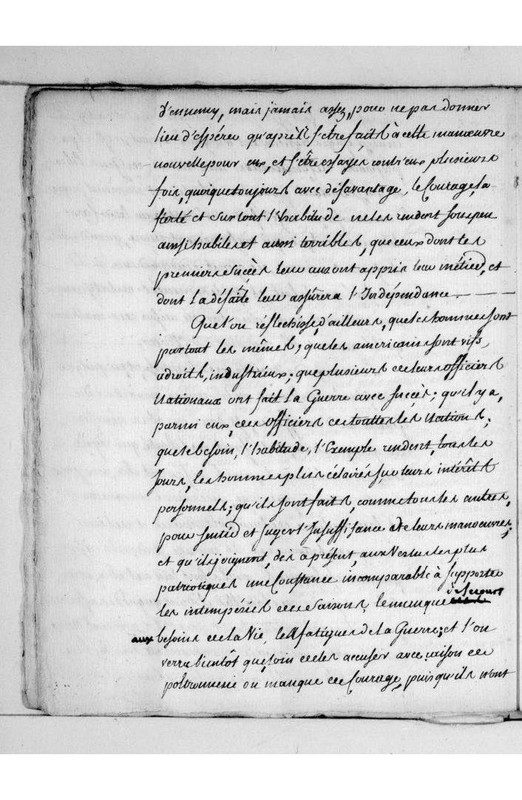 d'ennemy, mais jamais assez, pour ne pas donner
lieu d'espérer qu'après s'être fait à cette manœuvre
nouvelle pour eux, et s'être essayés contr'eux plusieurs
fois, quoique toujours avec désavantage, le Courage, la
fierté et surtout l'habitude ne les rendent sous peu
aussi habiles et aussi terribles, que ceux dont les
premiers succès leur auront appris leur métier, et
dont la défaite leur assûrera l'Indépendance.
Que l'on réfléchisse, d'ailleurs, que les hommes sont
partout les mêmes; que les americains sont vifs
adroits, industrieux; que plusieurs de leurs officiers
Nationaux ont fait la Guerre avec succès; qu'il y a,
parmi eux, des officiers de toutes les Nations;
que le besoin, l'habitude, l'Exemple rendent, tous les
Jours, les hommes plus éclairés sur leurs intérêts
personnels; qu'ils sont faits, comme tous les autres,
pour sentir et juger l'Insuffisance de leurs manœuvres;
et qu'ils joignent, dès à présent, aux Vertus les plus
patriotiques une Constance incomparable à supporter
les intempéries des Saisons, le manque de secours
aux besoins de la Vie, les fatigues de la Guerre; et l'on
verra bientôt que, loin de les accuser avec raison de
poltronnerie ou manque de Courage, puisqu'ils n'ont